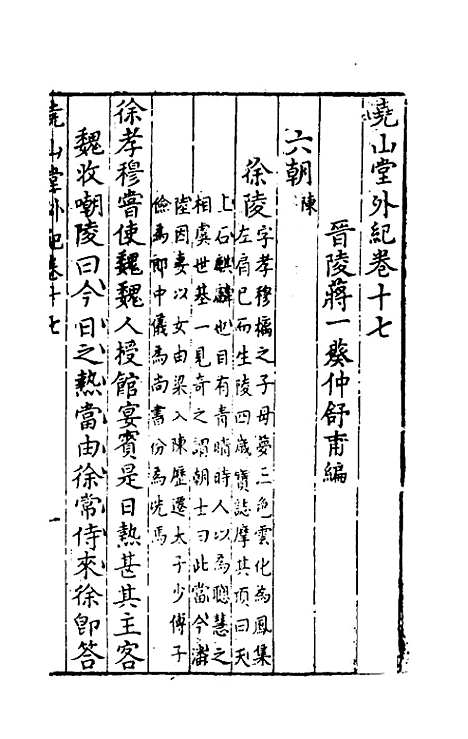 堯山堂外紀卷十七
晉陵蔣一葵仲舒甫編
六朝陳
徐陵字孝穆摛之子母夢五色雲化為鳳集
左肩已而生陵四歲寶誌摩其頂曰天
上石麒麟也目有青睛時人以為聰慧之
相虞世基一見奇之謂朝士曰此當今潘
陸因妻以女由梁入陳歷遷太子少傅子
儉為郎中儀為尚書份為洗馬
徐孝穆嘗使魏魏人授館宴賓是日熱甚其主客
魏收嘲陵曰今日之熱當由徐常侍來徐即答
堯山堂外紀卷十七
一